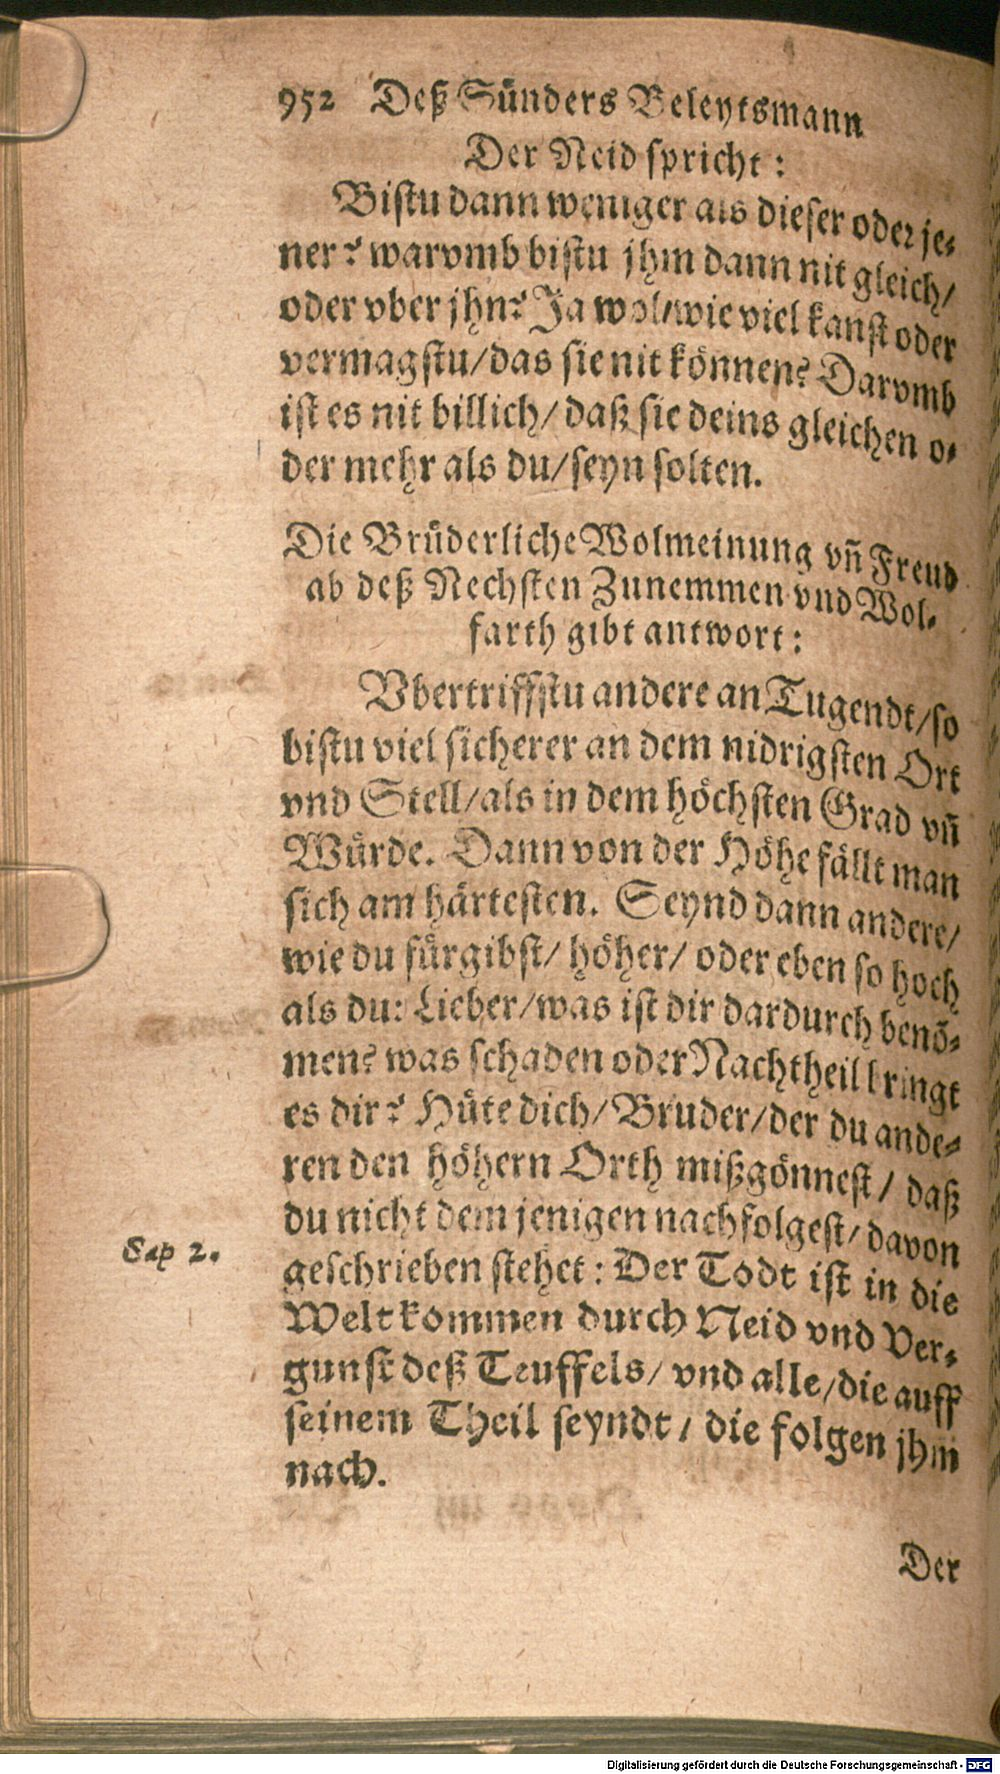 952 Deß Sünders Beleytsmann
Der Neid spricht:
Bistu dann weniger als dieser oder je-
ner? warvmb bistu jhm dann nit gleich/
oder vber jhn? Ja wol/wie viel kanst oder
vermagstu/das sie nit können? Darvmb
ist es nit billich/ daß sie deins gleichen o-
der mehr als du/seyn solten.
Die Brüderliche Wolmeinung vñ Freud
ab deß Nechsten Zunemmen vnd Wol-
farth gibt antwort:
Vbertriffstu andere an Tugendt/so
bistu viel sicherer an dem nidrigsten Ort
vnd Stell/als in dem höchsten Grad vñ
Würde. Dann von der Höhe fällt man
sich am härtesten. Seynd dann andere/
wie du fürgibst/ höher/ oder eben so hoch
als du: Lieber/was ist dir dardurch benõ-
men? was schaden oder Nachtheil bringt
es dir? Hüte dich/Bruder/der du ande-
ren den höhern Orth mißgönnest/ daß
du nicht dem jenigen nachfolgest/ davon
Sap 2.
geschrieben stehet: Der Todt ist in die
Welt kommen durch Neid vnd Ver-
gunst deß Teuffels/ vnd alle/die auff
seinem Theil seyndt/ die folgen jhm
nach.
Der
Digitalisierung gefördert durch die Deutsche Forschungsgemeinschaft - DFG